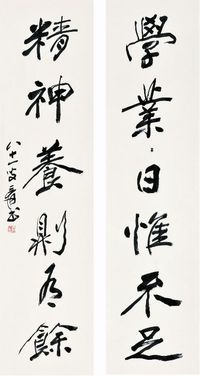 學業日惟不足
精神養則有餘
八十一叟爰書